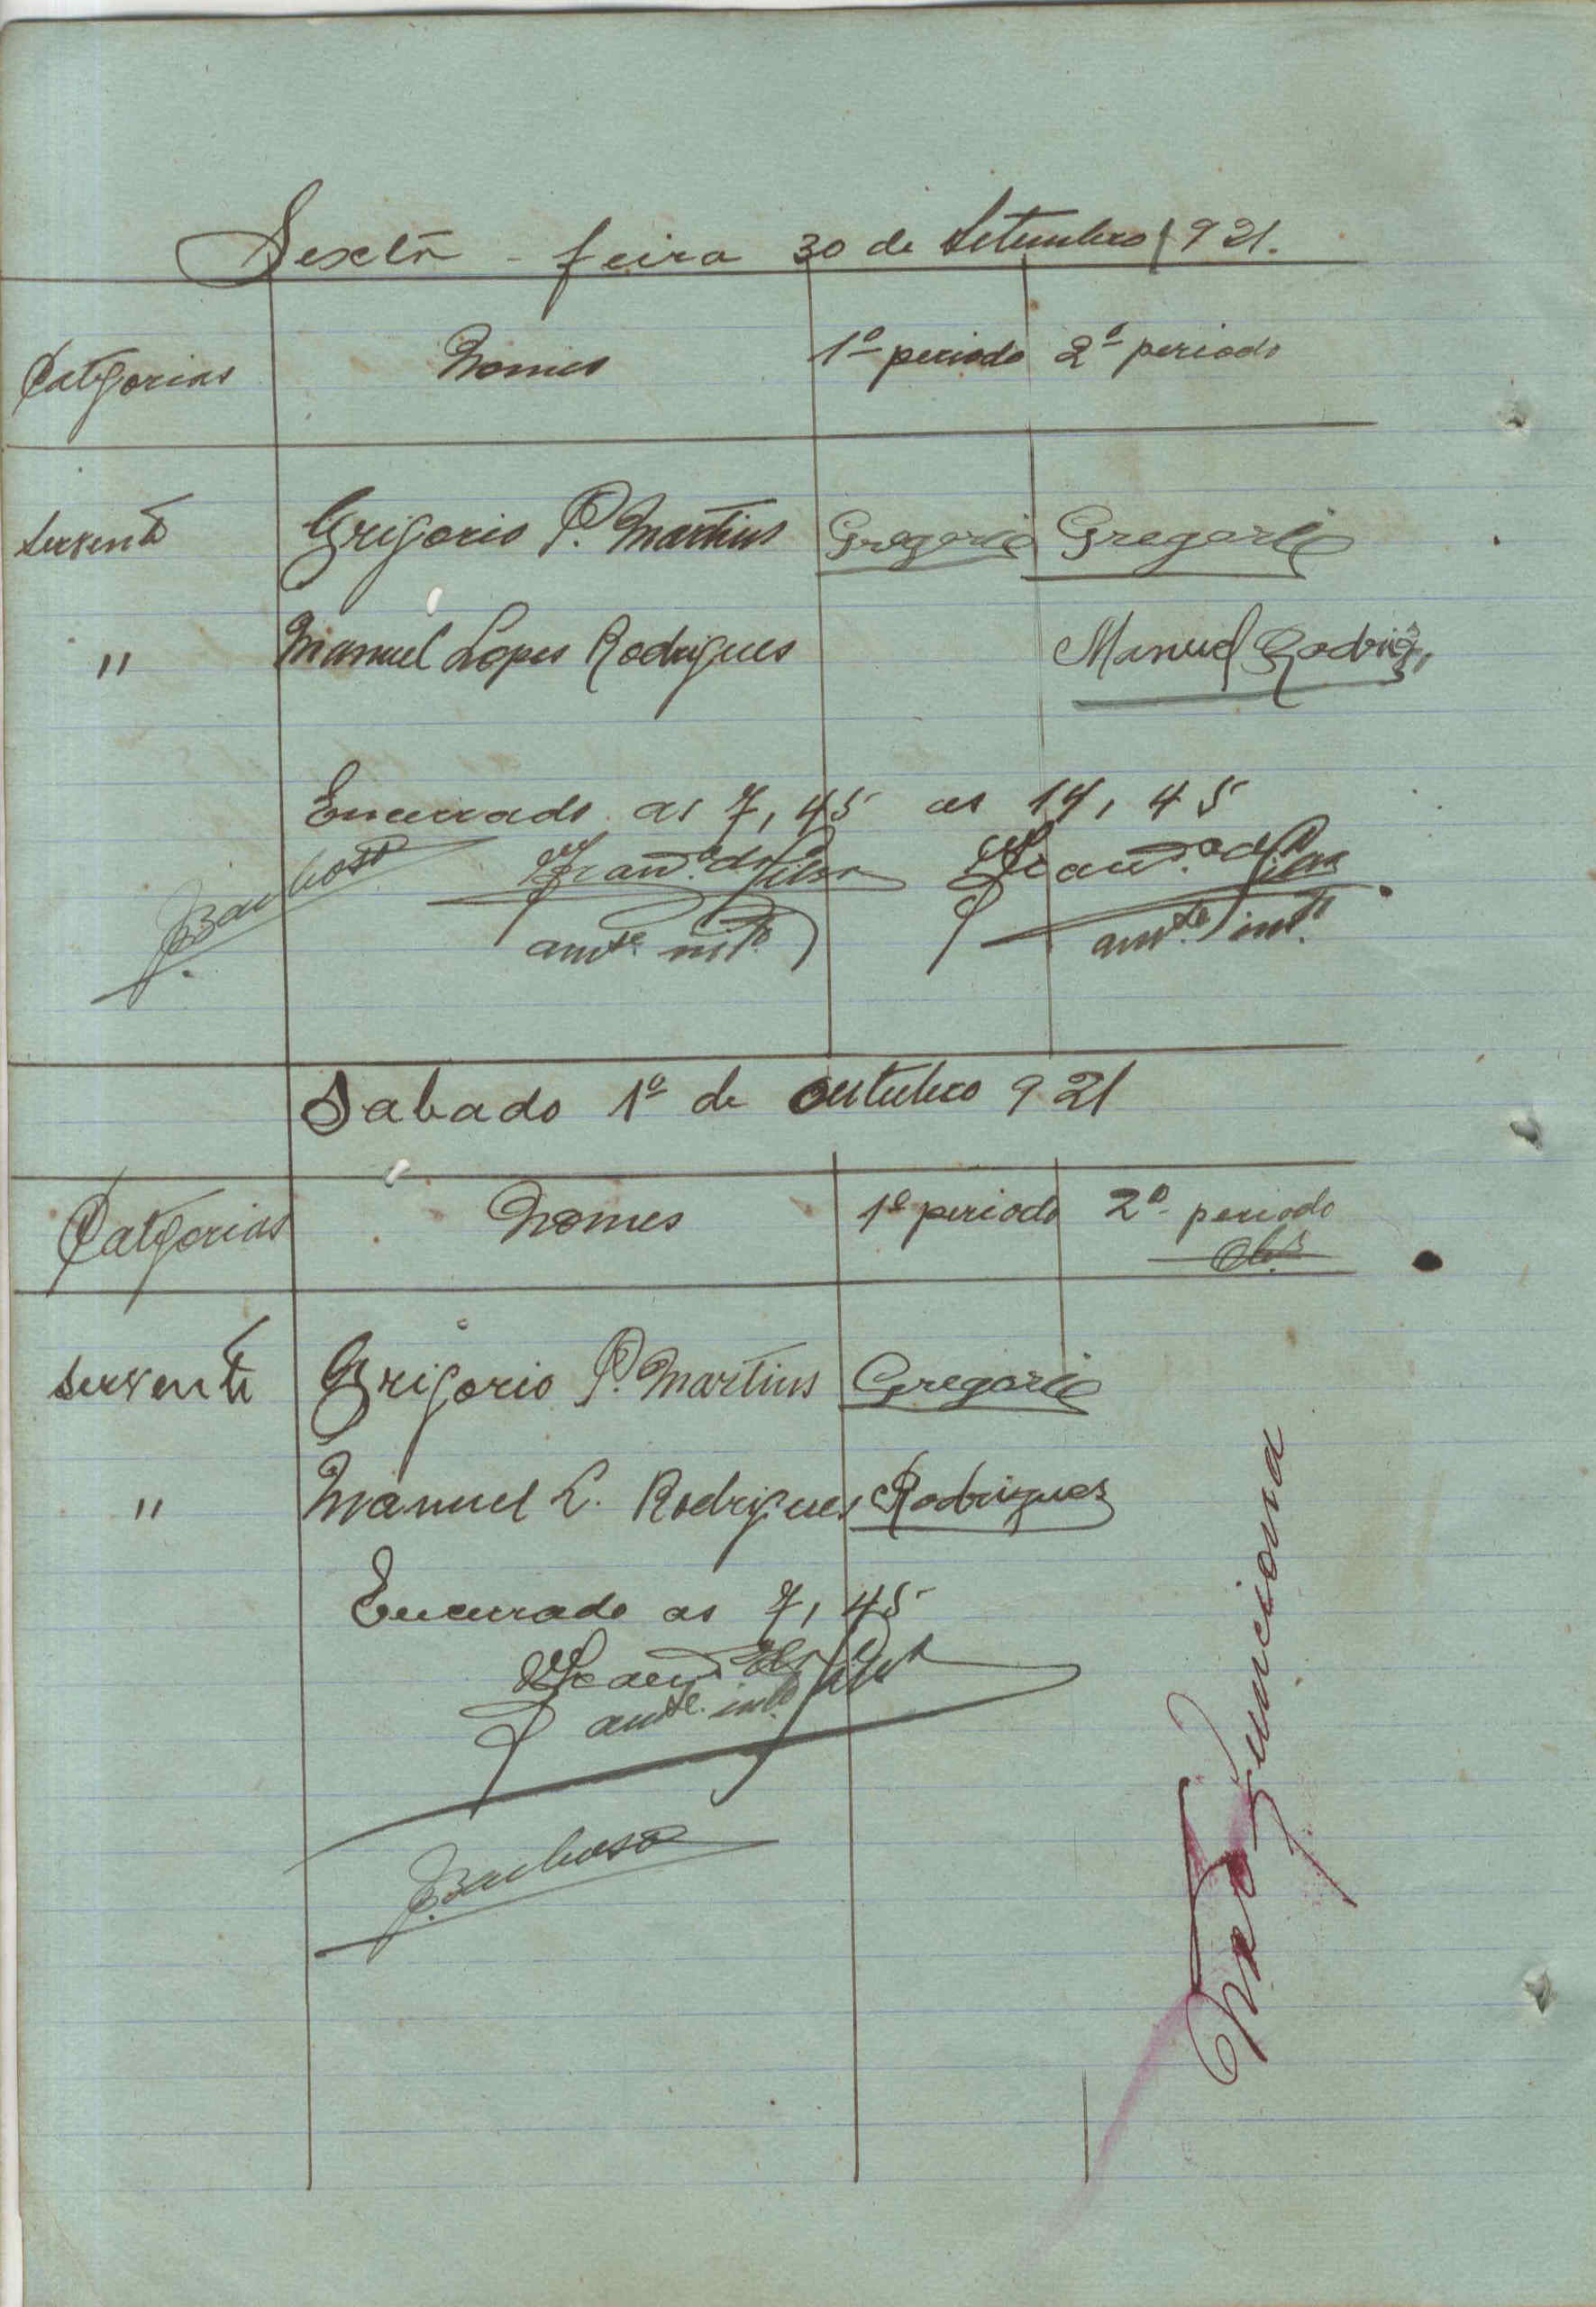 Sexta - feira 30 de Setembro 1921.
Categorias Nomes 1º periodo 2º periodo
Servente Grigorio P. Martins Gregorio Gregorio
" Manuel Lopes Rodrigues Manuel Rodrigs,
Encerrado as 7,45 as 14,45
Barbosa Franc.º da Silva Franc.º da Silva
amte. intº amte. intº
Sabado 1º de Outubro 921
Categorias Nomes 1º periodo 2º periodo
Servente Grigorio P. Martins Gregorio
" Manuel L. Rodrigues Rodrigues
Encerrado as 7,45
Franc.º da Silva
amte. intº
Barbosa
Não funciona